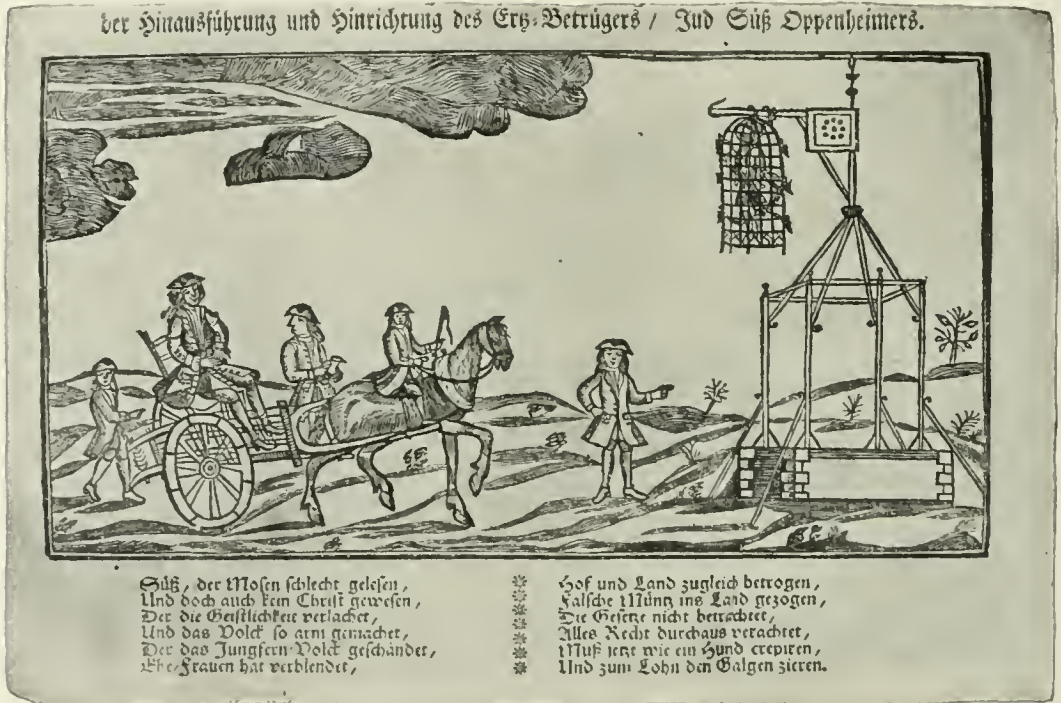 der Hinausführung und Hinrichtung des Ertz-Betrügers / Jud Süß Oppenheimers.
Süß, der Mosen schlecht gelesen,
Und doch auch kein Christ gewesen,
Der die Geistlichkeit verlachet,
Und das Volck so arm gemachet,
Der das Jungfern-Volck geschändet,
Ehe-Frauen hat verblendet,
Hof und Land zugleich betrogen,
Falsche Müntz ins Land gezogen,
Die Gesetze nicht betrachtet,
Alles Recht durchaus verachtet,
Muß jetzt wie ein Hund crepiren,
Und zum Lohn den Galgen zieren.